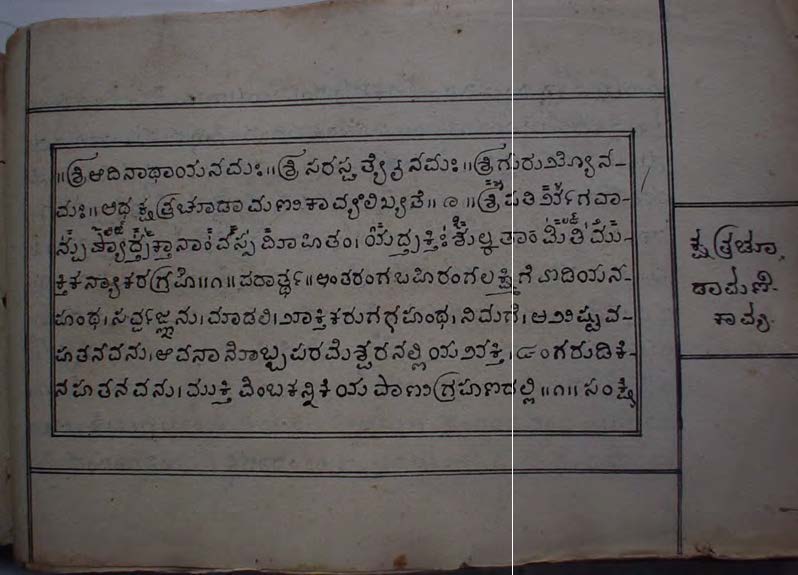 ॥ಶ್ರೀ ಆದಿನಾಥಾಯನಮಃ॥ಶ್ರೀ ಸರಸ್ವತ್ಯೈನಮಃ॥ಶ್ರೀಗುರುಭ್ಯೊನ-
ಮಃ॥ಅಥ ಕ್ಷತ್ರಚೂಡಾಮಣೀಕಾವ್ಯಂಲಿಖ್ಯತೆ॥ ಶ್ರೀಪತಿರ್ಭಗವಾ-
ನ್ಪುಷ್ಯಾದ್ಭಕ್ತಾನಾಂ ವಸ್ಸಮೀಹಿತಂ।ಯದ್ಭಕ್ತಿಃಶುಲ್ಕತಾಮೇತಿಮು-
ಕ್ತಿಕನ್ಯಾಕರಗ್ರಹೆ॥೧॥ಪದಾರ್ತ್ಥ॥ಅಂತರಂಗಬಹಿರಂಗಲಕ್ಷ್ಮಿಗೆ
ಹಂಥ।ಸರ್ವ್ವಜ್ಞನು।ಮಾಡಲಿ।ಭಕ್ತಿಕರುಗಳ್ಗಹಂಥ।ನಿಮಗೆ।
ಹತನವನು।ಆವನಾನೊಬ್ಬಪರಮೆಶ್ವರನಲ್ಲಿಯ ಭಕ್ತಿ।
ನಹತನವನು।ಮುಕ್ತಿ ಯೆಂಬಕನ್ನಿಕೆಯ ಪಾಣಿಗ್ರಹಣದಲ್ಲಿ॥೧॥ ಸಂಕ್ಷೆ
ಕ್ಷತ್ರಚೂ
ಡಾಮಣಿ
ಕಾವ್ಯ.